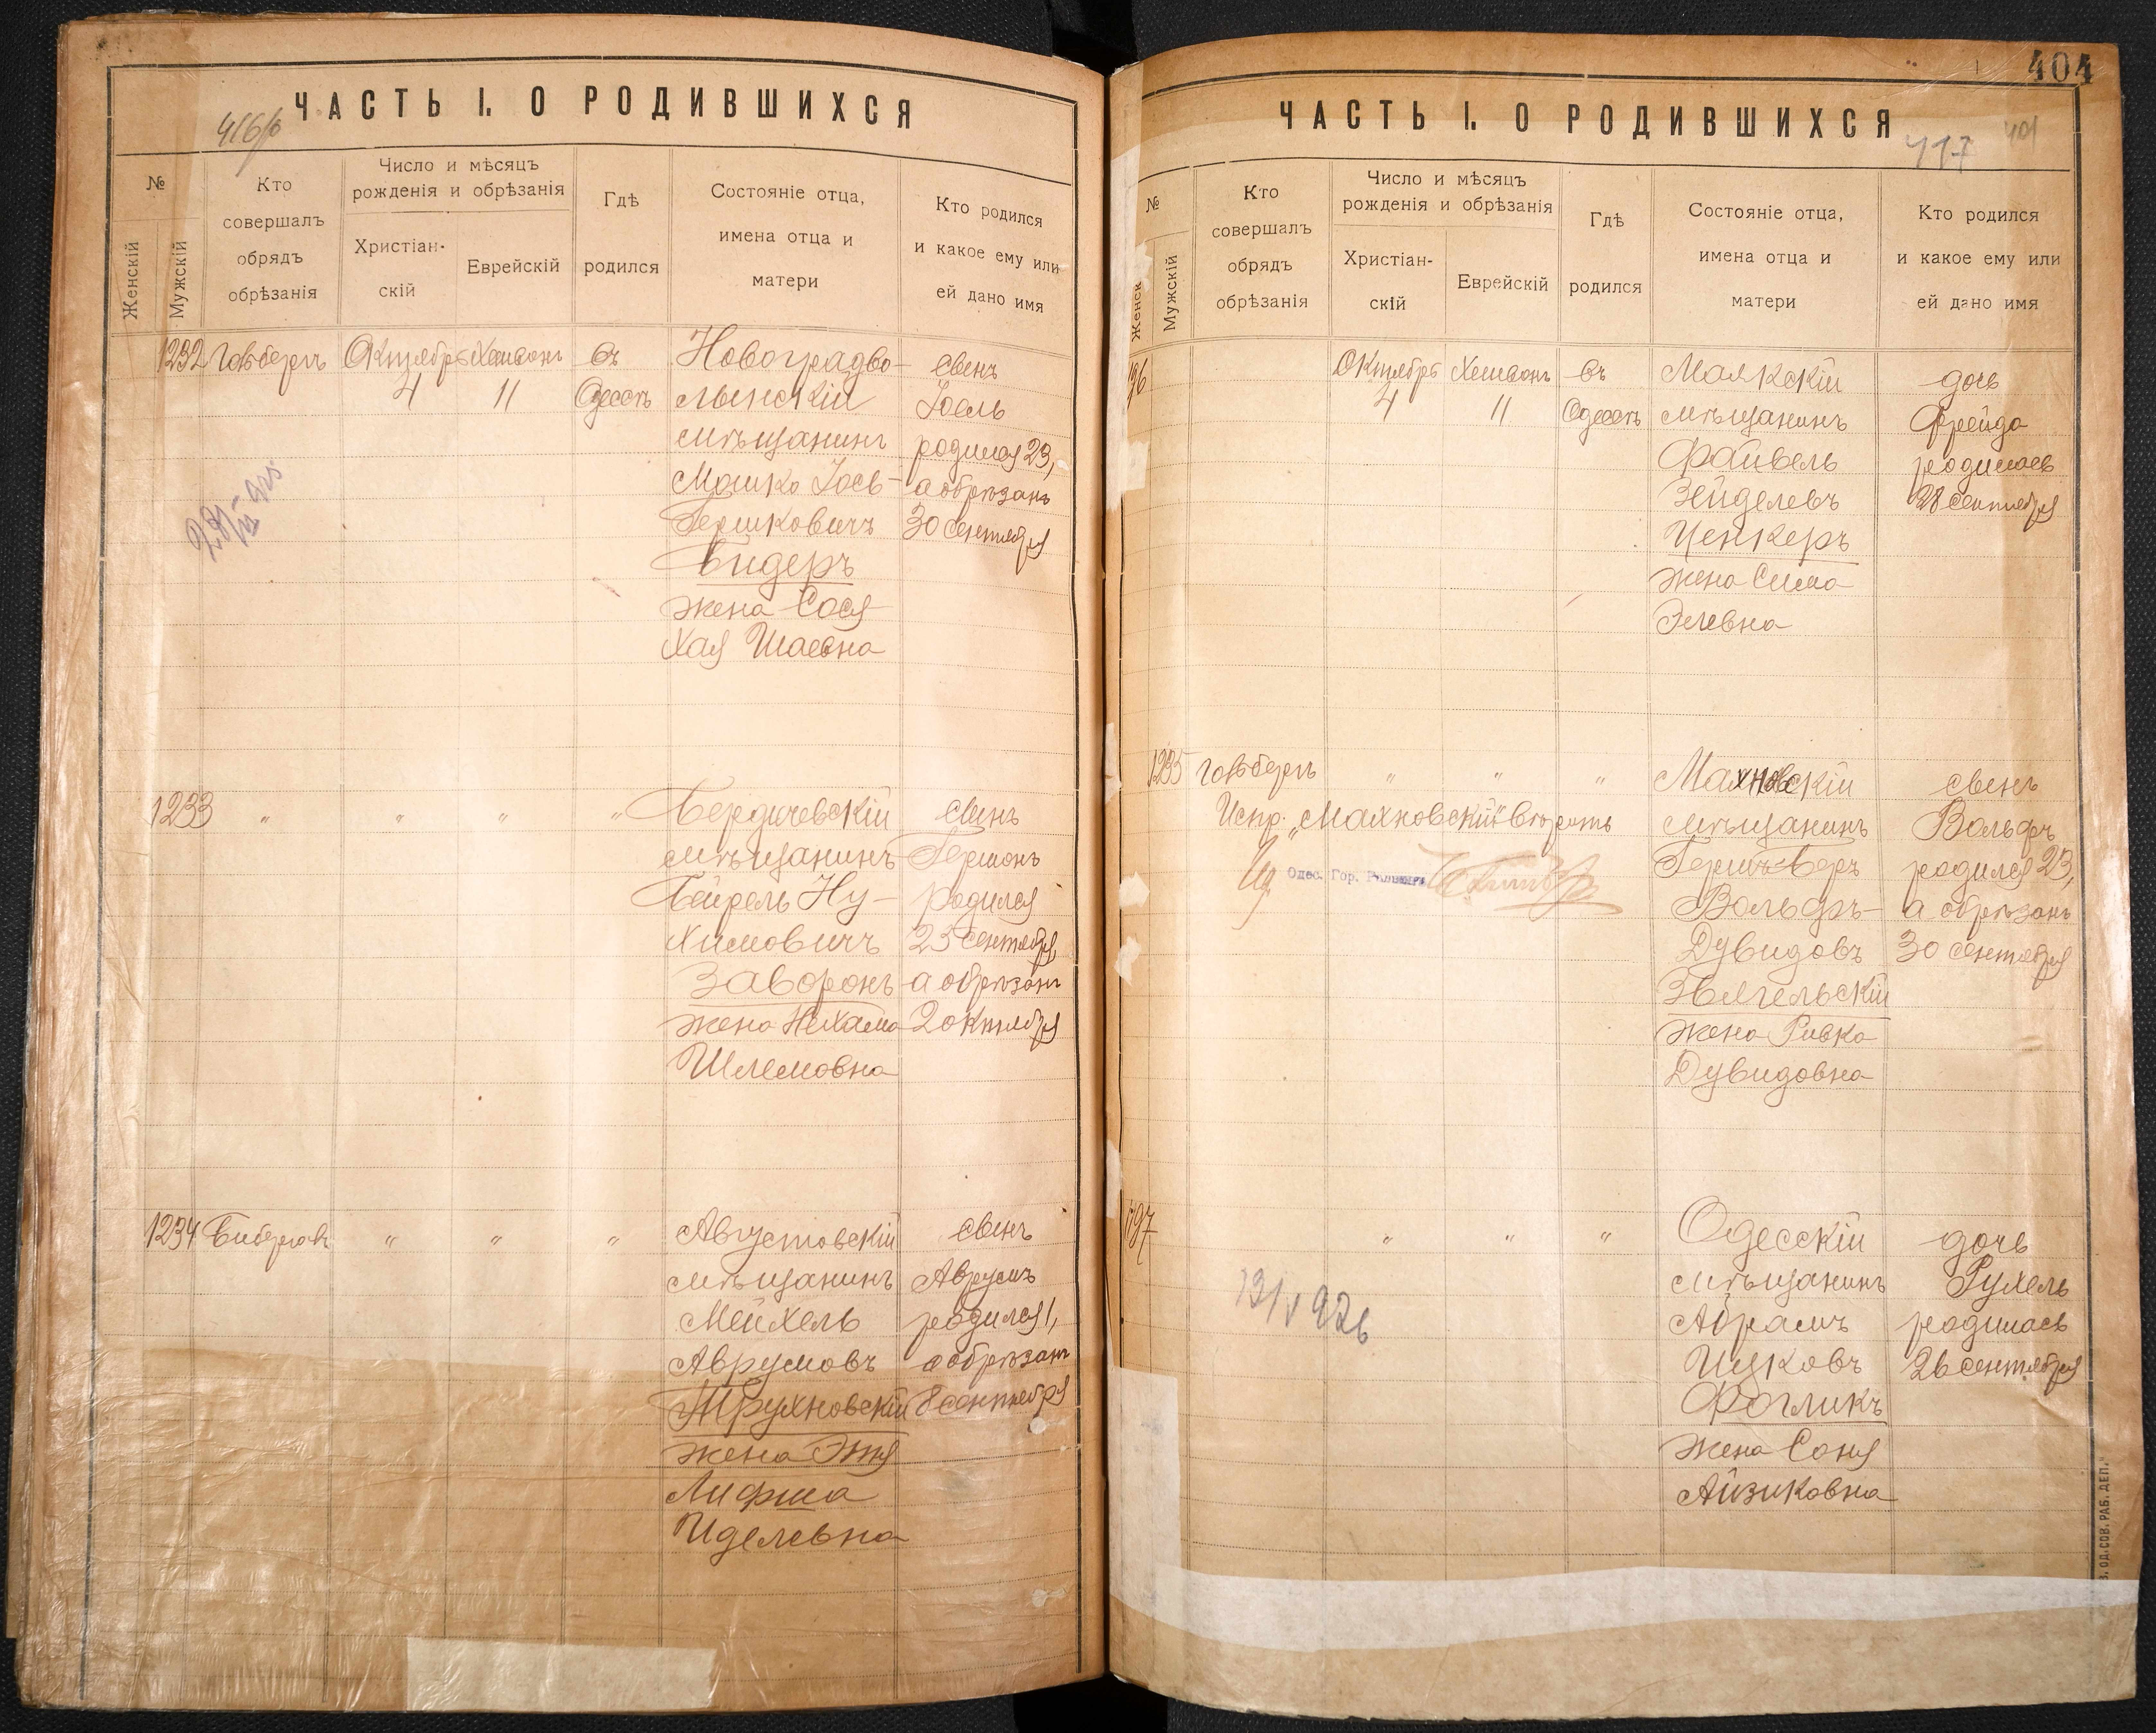 ЧАСТЬ I. О РОДИВШИХСЯ
416/б
№
Женскій
Мужскій
Кто
совершалъ
обрядъ
обрѣзанія
Число и мѣсяцъ
рожденія и обрѣзанія
Христіан-
скій
Еврейскій
Гдѣ
родился
Состояніе отца,
имена отца и
матери
Кто родился
и какое ему или
ей дано имя
1232
Октябрь
4
Хешванъ
11
въ
Одессѣ
Новоградво-
лынскій
мѣщанинъ
Мошко Іось-
Гершковичъ
Бидеръ
жена Сося
Хая Шаевна
сынъ
Іоель
родился 23,
а обрѣзанъ
30 сентября
1233
"
"
"
"
Бердичевскій
мѣщанинъ
Бейрель Ну-
химовичъ
Заворонъ
жена Нехама
Шлемовна
сынъ
Гершонъ
родился
25 сентября,
а обрѣзанъ
2 октября
1234
"
"
"
Августовскій
мѣщанинъ
Мейхель
Аврумовъ
Трухновскій
жена Этя
Лифша
Иделевна
сынъ
Аврумъ
родился 1,
а обрѣзанъ
8 сентября
404
ЧАСТЬ I. О РОДИВШИХСЯ
417
401
№
Женск
Мужскій
Кто
совершалъ
обрядъ
обрѣзанія
Число и мѣсяцъ
рожденія и обрѣзанія
Христіан-
скій
Еврейскій
Гдѣ
родился
Состояніе отца,
имена отца и
матери
Кто родился
и какое ему или
ей дано имя
Октябрь
4
Хешванъ
11
въ
Одессѣ
Маякскій
мѣщанинъ
Файвель
Зейделевъ
Ценкеръ
жена Сима
Элевна
дочь
Фрейда
родилась
28 сентября
1235
"
"
"
Испр. „Махновскій" вѣрить
Одес. Гор.
Махновскій
мѣщанинъ
Гершъ-Беръ
Вольфъ-
Дувидовъ
Звягельскій
жена Ривка
Дувидовна
сынъ
Вольфъ
родился 23,
а обрѣзанъ
30 сентября
"
"
"
13/V 926
Одесскій
мѣщанинъ
Абрамъ
Ицковъ
Фогликъ
жена Соня
Айзиковна
дочь
Рухель
родилась
26 сентября
ОД. СОВ. РАБ. ДЕП."